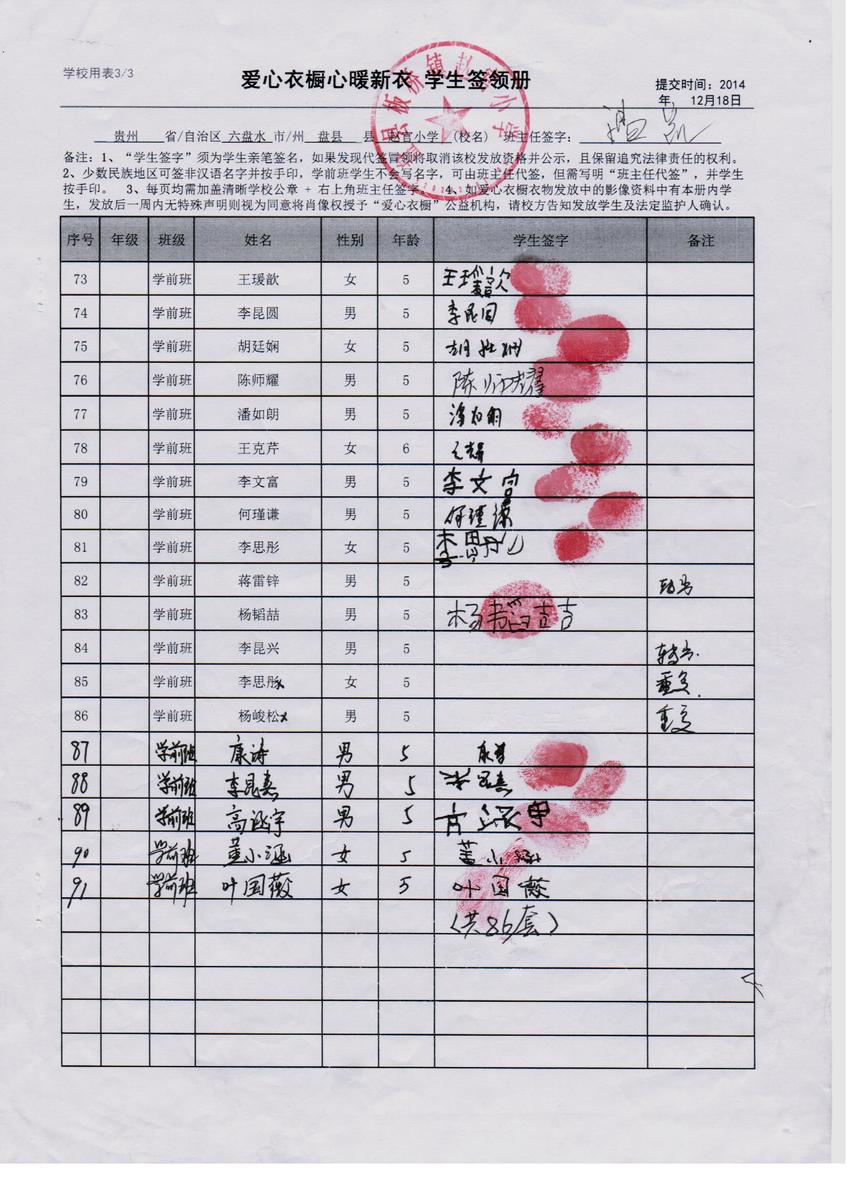 学校用表3/3
爱心衣橱心暖新衣 学生签领册
提交时间：2014
年 12月18日
贵州 省/自治区 六盘水 市/州 盘县 县 赵官小学 （校名） 班主任签字：
备注：1、“学生签字”须为学生亲笔签名，如果发现代签冒领将取消该校发放资格并公示，且保留追究法律责任的权利。
2、少数民族地区可签非汉语名字并按手印，学前班学生不会写名字，可由班主任代签，但需写明“班主任代签”，并学生
按手印。 3、每页均需加盖清晰学校公章 + 右上角班主任签字。 4、如爱心衣橱衣物发放中的影像资料中有本册内学
生，发放后一周内无特殊声明则视为同意将肖像权授予“爱心衣橱”公益机构，请校方告知发放学生及法定监护人确认。
序号 年级 班级 姓名 性别 年龄 学生签字 备注
73 学前班 王瑗歆 女 5 王瑗歆
74 学前班 李昆圆 男 5 李昆圆
75 学前班 胡廷娴 女 5 胡廷娴
76 学前班 陈师耀 男 5 陈师耀
77 学前班 潘如朗 男 5 潘如朗
78 学前班 王克芹 女 6
79 学前班 李文富 男 5 李文富
80 学前班 何瑾谦 男 5 何瑾谦
81 学前班 李思彤 女 5 李思彤
82 学前班 蒋雷锌 男 5
83 学前班 杨韬喆 男 5 杨韬喆
84 学前班 李昆兴 男 5 转出
85 学前班 李思彤 女 5 重复
86 学前班 杨峻松 男 5 重复
87 学前班 康涛 男 5 康涛
88 学前班 李昆熹 男 5
89 学前班 高涵宇 男 5
90 学前班 董小涵 女 5 董小涵
91 学前班 叶国薇 女 5 叶国薇
（共86套）